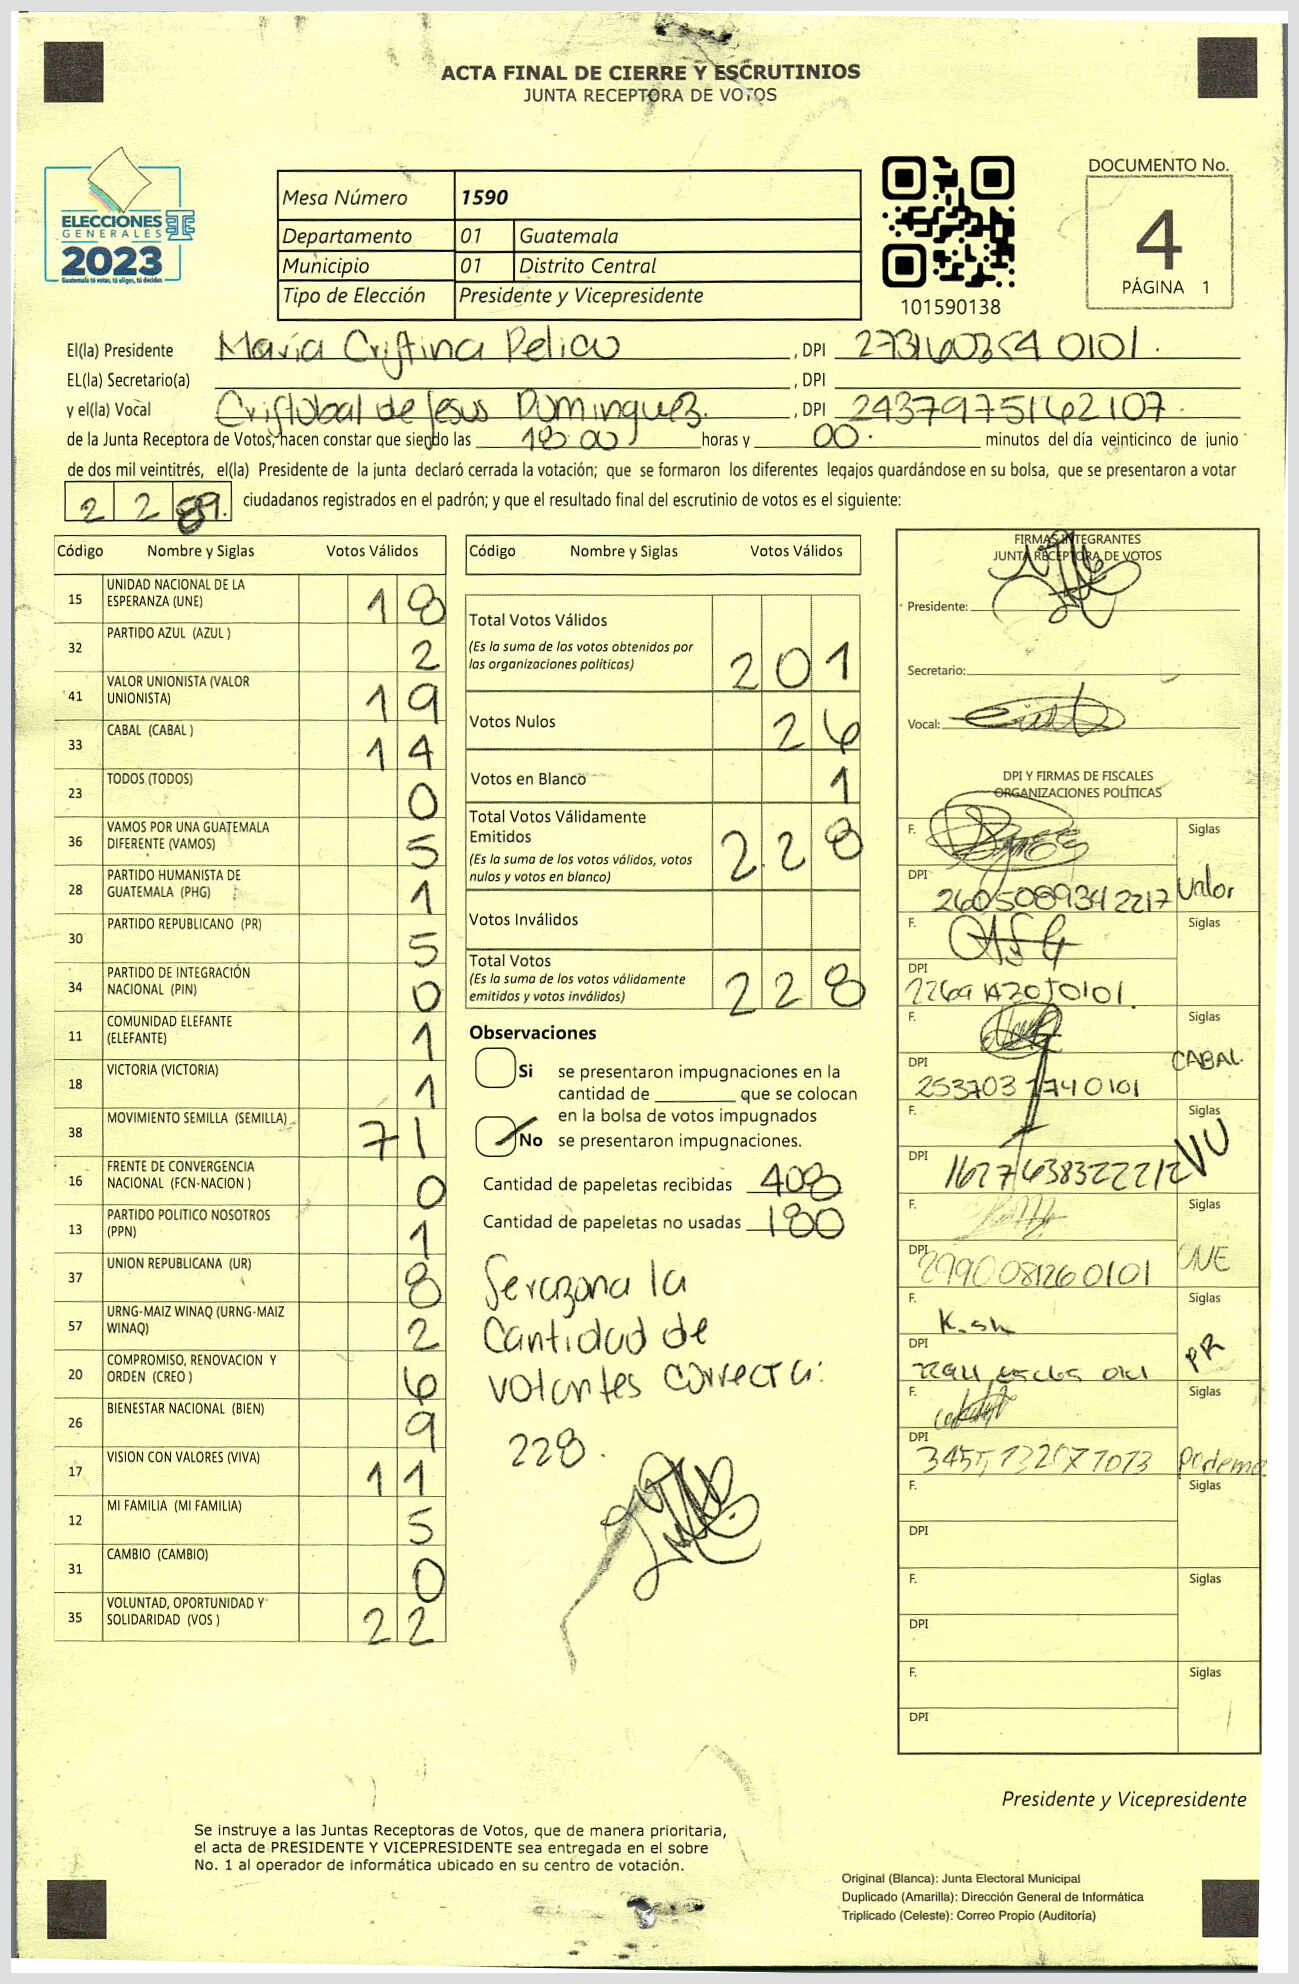 ACTA FINAL DE CIERRE Y ESCRUTINIOS
JUNTA RECEPTORA DE VOTOS
ELECCIONES
GENERALES
2023
Guatemala tú votas, tú eliges, tú decides
Mesa Número 1590
Departamento 01 Guatemala
Municipio 01 Distrito Central
Tipo de Elección Presidente y Vicepresidente
101590138
DOCUMENTO No.
4
PÁGINA 1
El(la) Presidente María Cristina Pelico , DPI 0101.
EL(la) Secretario(a) , DPI
y el(la) Vocal Cristobal de Jesus Dominguez. , DPI 2437975162107.
de la Junta Receptora de Votos, hacen constar que siendo las 18:00 horas y 00. minutos del día veinticinco de junio
de dos mil veintitrés, el(la) Presidente de la junta declaró cerrada la votación; que se formaron los diferentes legajos guardándose en su bolsa, que se presentaron a votar
2 2 ciudadanos registrados en el padrón; y que el resultado final del escrutinio de votos es el siguiente:
Código Nombre y Siglas Votos Válidos
15 UNIDAD NACIONAL DE LA ESPERANZA (UNE) 18
32 PARTIDO AZUL (AZUL ) 2
41 VALOR UNIONISTA (VALOR UNIONISTA) 19
33 CABAL (CABAL ) 14
23 TODOS (TODOS) 0
36 VAMOS POR UNA GUATEMALA DIFERENTE (VAMOS) 5
28 PARTIDO HUMANISTA DE GUATEMALA (PHG) 1
30 PARTIDO REPUBLICANO (PR) 5
34 PARTIDO DE INTEGRACIÓN NACIONAL (PIN) 0
11 COMUNIDAD ELEFANTE (ELEFANTE) 1
18 VICTORIA (VICTORIA) 1
38 MOVIMIENTO SEMILLA (SEMILLA) 71
16 FRENTE DE CONVERGENCIA NACIONAL (FCN-NACION ) 0
13 PARTIDO POLITICO NOSOTROS (PPN) 1
37 UNION REPUBLICANA (UR) 8
57 URNG-MAIZ WINAQ (URNG-MAIZ WINAQ) 2
20 COMPROMISO, RENOVACION Y ORDEN (CREO ) 6
26 BIENESTAR NACIONAL (BIEN) 9
17 VISION CON VALORES (VIVA) 11
12 MI FAMILIA (MI FAMILIA) 5
31 CAMBIO (CAMBIO) 0
35 VOLUNTAD, OPORTUNIDAD Y SOLIDARIDAD (VOS ) 22
Código Nombre y Siglas Votos Válidos
Total Votos Válidos 201
(Es la suma de los votos obtenidos por
las organizaciones políticas)
Votos Nulos 26
Votos en Blanco 1
Total Votos Válidamente
Emitidos 228
(Es la suma de los votos válidos, votos
nulos y votos en blanco)
Votos Inválidos
Total Votos 228
(Es la suma de los votos válidamente
emitidos y votos inválidos)
Observaciones
Si se presentaron impugnaciones en la
cantidad de ________ que se colocan
en la bolsa de votos impugnados
No se presentaron impugnaciones.
Cantidad de papeletas recibidas 408
Cantidad de papeletas no usadas 180
Se razona la
Cantidad de
votantes correcta:
228.
FIRMAS INTEGRANTES
JUNTA RECEPTORA DE VOTOS
Presidente:
Secretario:
Vocal:
DPI Y FIRMAS DE FISCALES
ORGANIZACIONES POLÍTICAS
F. Siglas
DPI 2605089342217 Valor
F. Siglas
DPI
F. Siglas
DPI 0101 CABAL
F. Siglas
DPI 1627638322212 VU
F. Siglas
DPI 2990081260101 UNE
F. K.sh Siglas
DPI PR
F. Siglas
DPI Podemo
F. Siglas
DPI
F. Siglas
DPI
F. Siglas
DPI
Presidente y Vicepresidente
Se instruye a las Juntas Receptoras de Votos, que de manera prioritaria,
el acta de PRESIDENTE Y VICEPRESIDENTE sea entregada en el sobre
No. 1 al operador de informática ubicado en su centro de votación.
Original (Blanca): Junta Electoral Municipal
Duplicado (Amarilla): Dirección General de Informática
Triplicado (Celeste): Correo Propio (Auditoría)